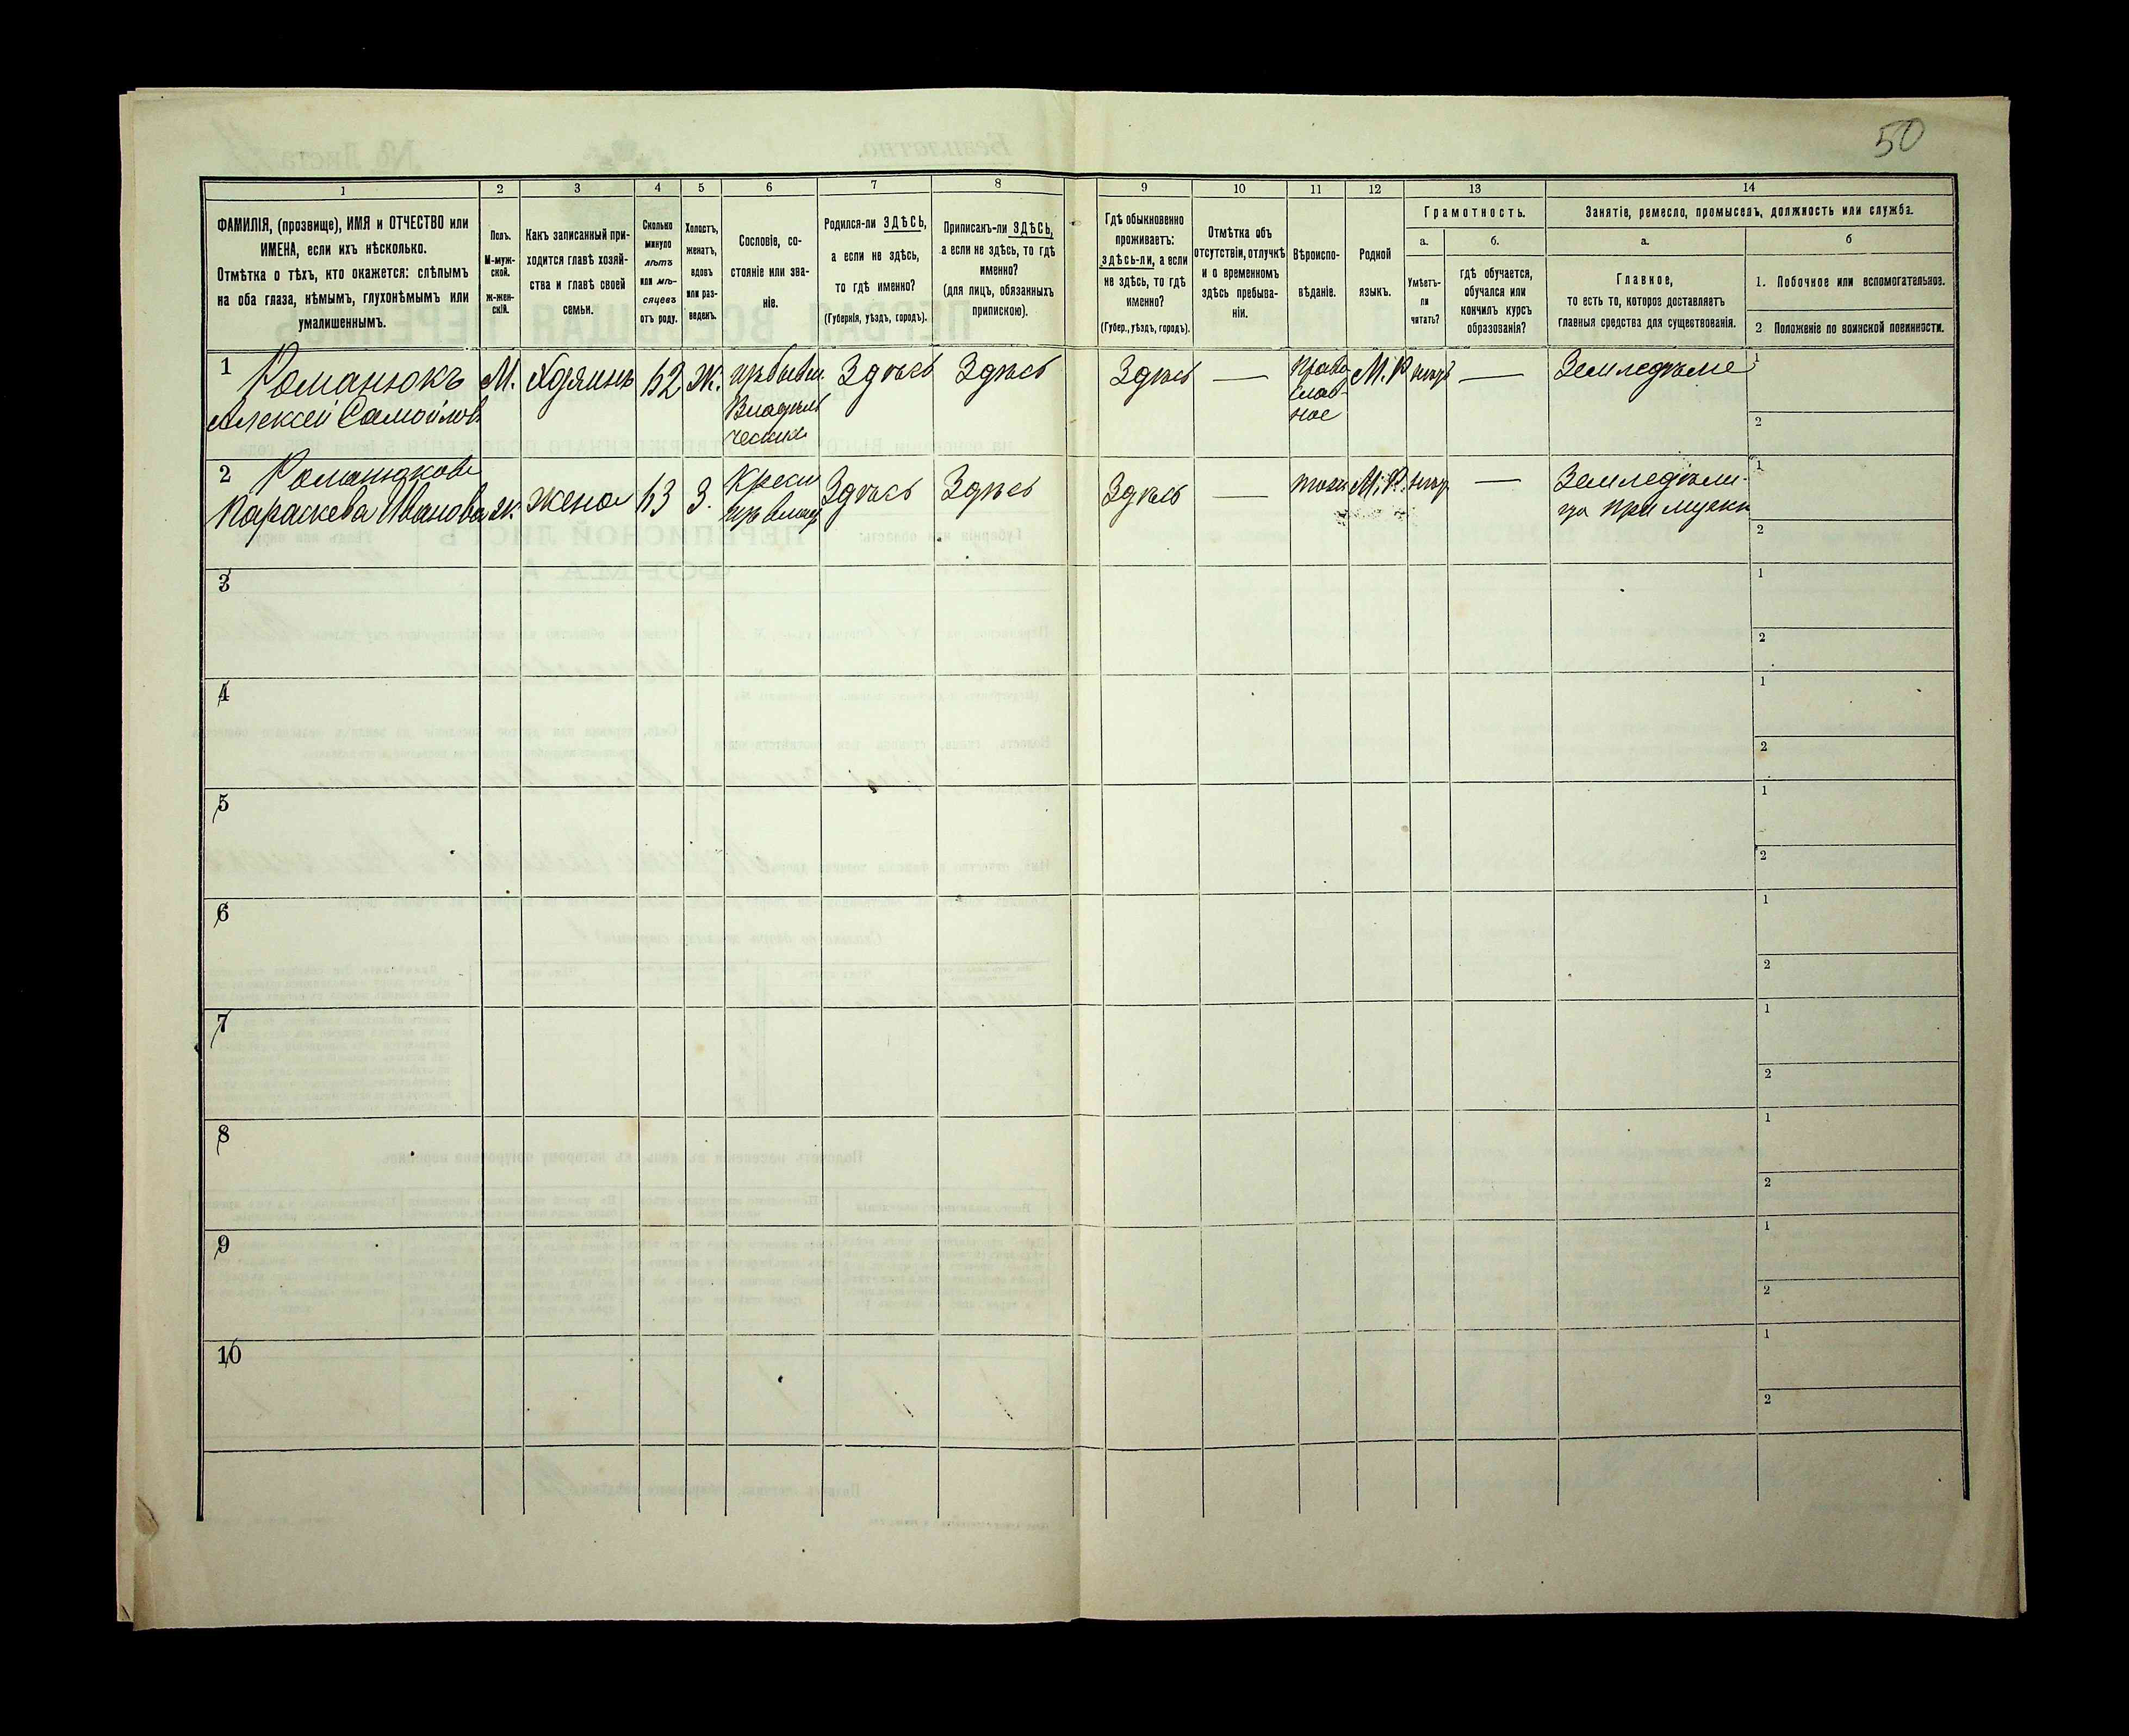 50
1
2
3
4
5
6
7
8
9
10
11
12
13
14
ФАМИЛІЯ, (прозвище), ИМЯ и ОТЧЕСТВО или
ИМЕНА, если ихъ нѣсколько.
Отмѣтка о тѣхъ, кто окажется: слѣпымъ
на оба глаза, нѣмымъ, глухонѣмымъ или
умалишеннымъ.
Полъ.
М-муж-
ской.
ж-жен-
скій.
Какъ записанный при-
ходится главѣ хозяй-
ства и главѣ своей
семьи.
Сколько
минуло
лѣтъ
или мѣ-
сяцевъ
отъ роду.
Холостъ,
женатъ,
вдовъ
или раз-
веденъ.
Сословіе, со-
стояніе или зва-
ніе.
Родился-ли ЗДѢСЬ,
а если не здѣсь,
то гдѣ именно?
(Губернія, уѣздъ, городъ).
Приписанъ-ли ЗДѢСЬ,
а если не здѣсь, то гдѣ
именно?
(для лицъ, обязанныхъ
припискою).
Гдѣ обыкновенно
проживаетъ:
здѣсь-ли, а если
не здѣсь, то гдѣ
именно?
(Губер., уѣздъ, городъ).
Отмѣтка объ
отсутствіи, отлучкѣ
и о временномъ
здѣсь пребыва-
ніи.
Вѣроиспо-
вѣданіе.
Родной
языкъ.
Грамотность.
а.
Умѣетъ-
ли
читать?
б.
гдѣ обучается,
обучался или
кончилъ курсъ
образованія?
Занятіе, ремесло, промыселъ, должность или служба.
а.
Главное,
то есть то, которое доставляетъ
главныя средства для существованія.
б
1. Побочное или вспомогательное.
2 Положеніе по воинской повинности.
1 Романюкъ
Алексей Самойлов
М.
Хозяинъ
62
Ж.
изъ бывш.
Владѣль
ческихъ
Здѣсь
Здѣсь
Здѣсь
—
Право
слав-
ное
М. Р
нѣтъ
—
Земледѣлие
1
2
2 Романюкова
Параскева Иванова
ж.
жена
63
З.
Крест
изъ владѣ
Здѣсь
Здѣсь
Здѣсь
—
тоже
М. Р.
нѣтъ
—
Земледѣли-
ца при мужѣ
1
2
3
1
2
4
1
2
5
1
2
6
1
2
7
1
2
8
1
2
9
1
2
10
1
2